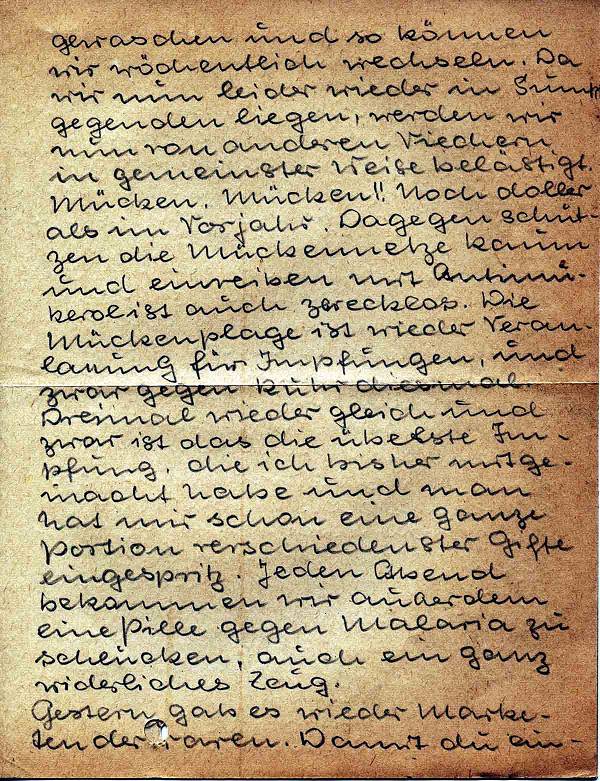 gewaschen und so können
wir wöchentlich wechseln. Da
wir nun leider wieder in Sumpf
gegenden liegen, werden wir
nun von anderen Viechern
in gemeinster Weise belästigt.
Mücken, Mücken!! Noch doller
als im Vorjahr. Dagegen schüt-
zen die Mückennetze kaum
und einreiben mit Antimü-
kerol ist auch zwecklos. Die
Mückenplage ist wieder Veran-
lassung für Impfungen, und
zwar gegen Ruhr diesmal.
Dreimal wieder gleich und
zwar ist das die übelste Im-
pfung, die ich bisher mitge-
macht habe und man
hat mir schon eine ganze
Portion verschiedenster Gifte
eingespritz. Jeden Abend
bekommen wir außerdem
eine Pille gegen Malaria zu
schlucken, auch ein ganz
widerliches Zeug.
Gestern gab es wieder Marke-
tenderwaren. Damit du ein-